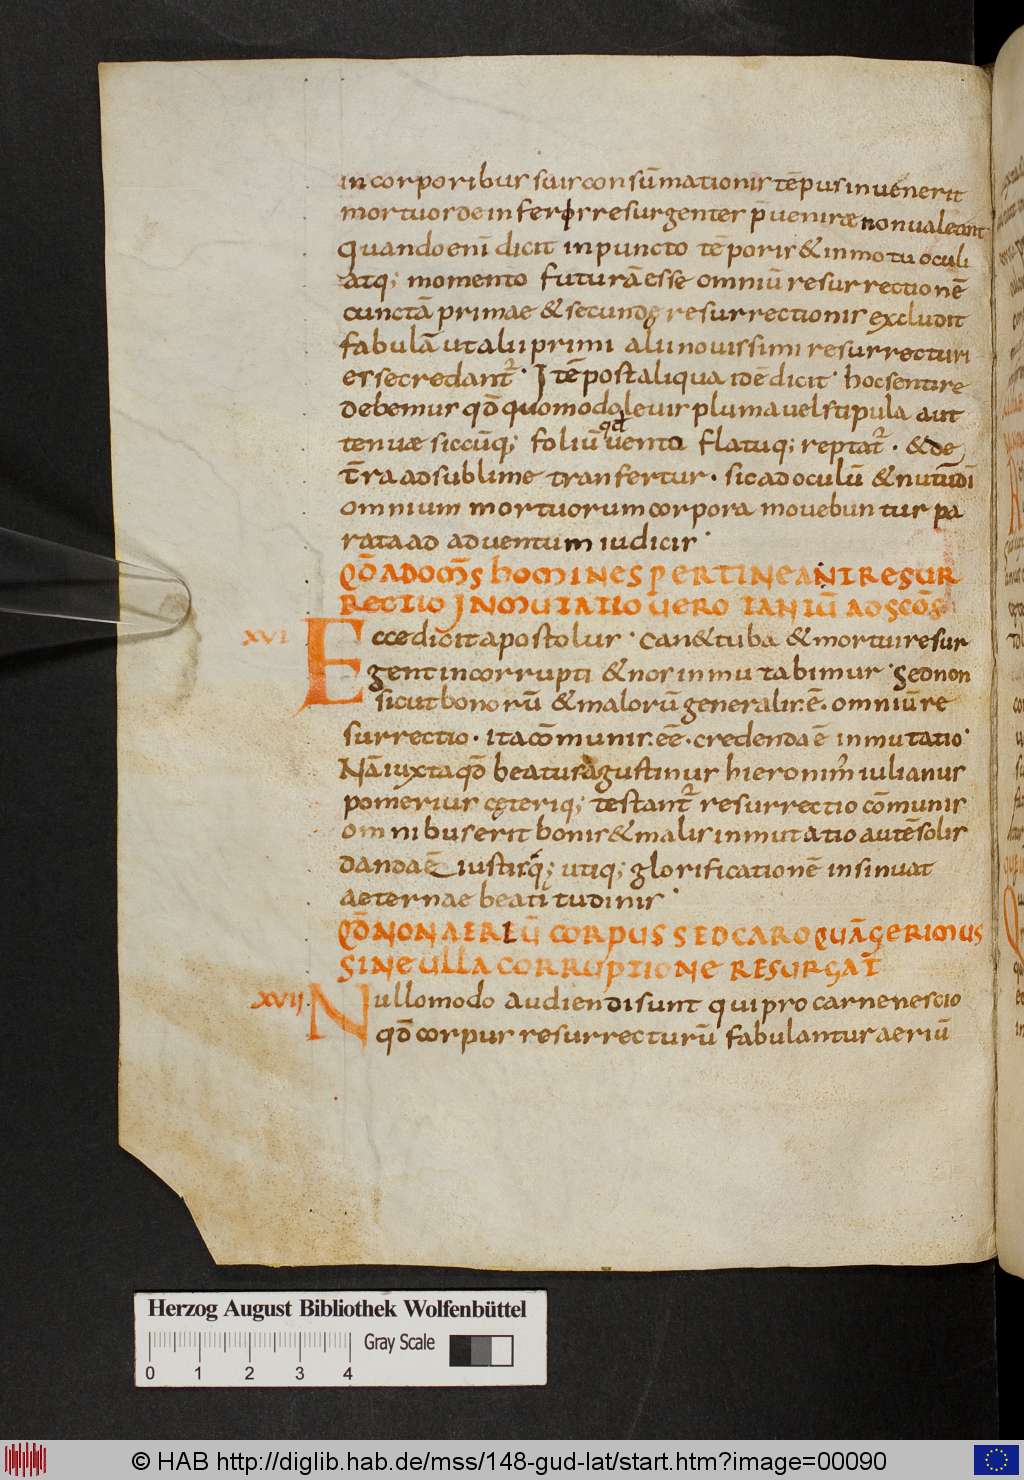 incorporibus suis consūmationis tēpus invenerit
mortuos deinferis resurgentes p̄ venirae non valeant
Quando enī dicit inpuncto tēporis & inmotu oculi
atq; momento futurā esse omniū resurrectionē
cunctā primae & secundę resurrectionis excludit
fabulā ut alii primi alii novissimi resurrecturi
esse credant᷑. Itē post aliqua idē dicit. hoc sentire
debemus qđ quomodo levis pluma vel stipula aut
tenuae siccūq; foliū qđ vento flatuq; reptat᷑. & de
t̄ra ad sublime transfertur. sic ad oculū & nutū dī
omnium mortuorum corpora movebuntur pa
rata ad adventum iudicis.
QĐ AD OM̄S HOMINES PERTINEANT RESUR
RECTIO INMUTATIO VERO TANTŪ AD SC̄OS
XVI Ecce dicit apostolus. Can& tuba & mortui resur
gent incorrupti & nos inmutabimur. Sed non
sicut bonorū & malorū generalis. ē. omniū re
surrectio. ita cōmunis. eē. credenda ē inmutatio.
Nā iuxta qđ beatus agustinus hieronim᷒ iulianus
pomerius cęteriq; testant᷑ resurrectio cōmunis
omnibus erit bonis & malis inmutatio autē solis
danda ē iustis q; utiq; glorificationē insinuat
aeternae beatitudinis.
QĐ NON AERIŪ CORPUS SED CARO QUĀ GERIMUS
SINE ULLA CORRUPTIONE RESURGAT̄
XVII Nullo modo audiendi sunt qui pro carne nescio
qđ corpus resurrecturū fabulantur aeriū
Herzog August Bibliothek Wolfenbüttel
Gray Scale
0 1 2 3 4
© HAB http://diglib.hab.de/mss/148-gud-lat/start.htm?image=00090